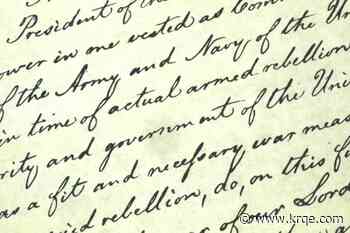 President of the
power in me vested as Com
of the Army and Navy of the Un
in time of actual armed rebellion
rity and government of the Uni
as a fit and necessary war meas
ied rebellion, do, on this fi
of our Lord
www.krqe.com